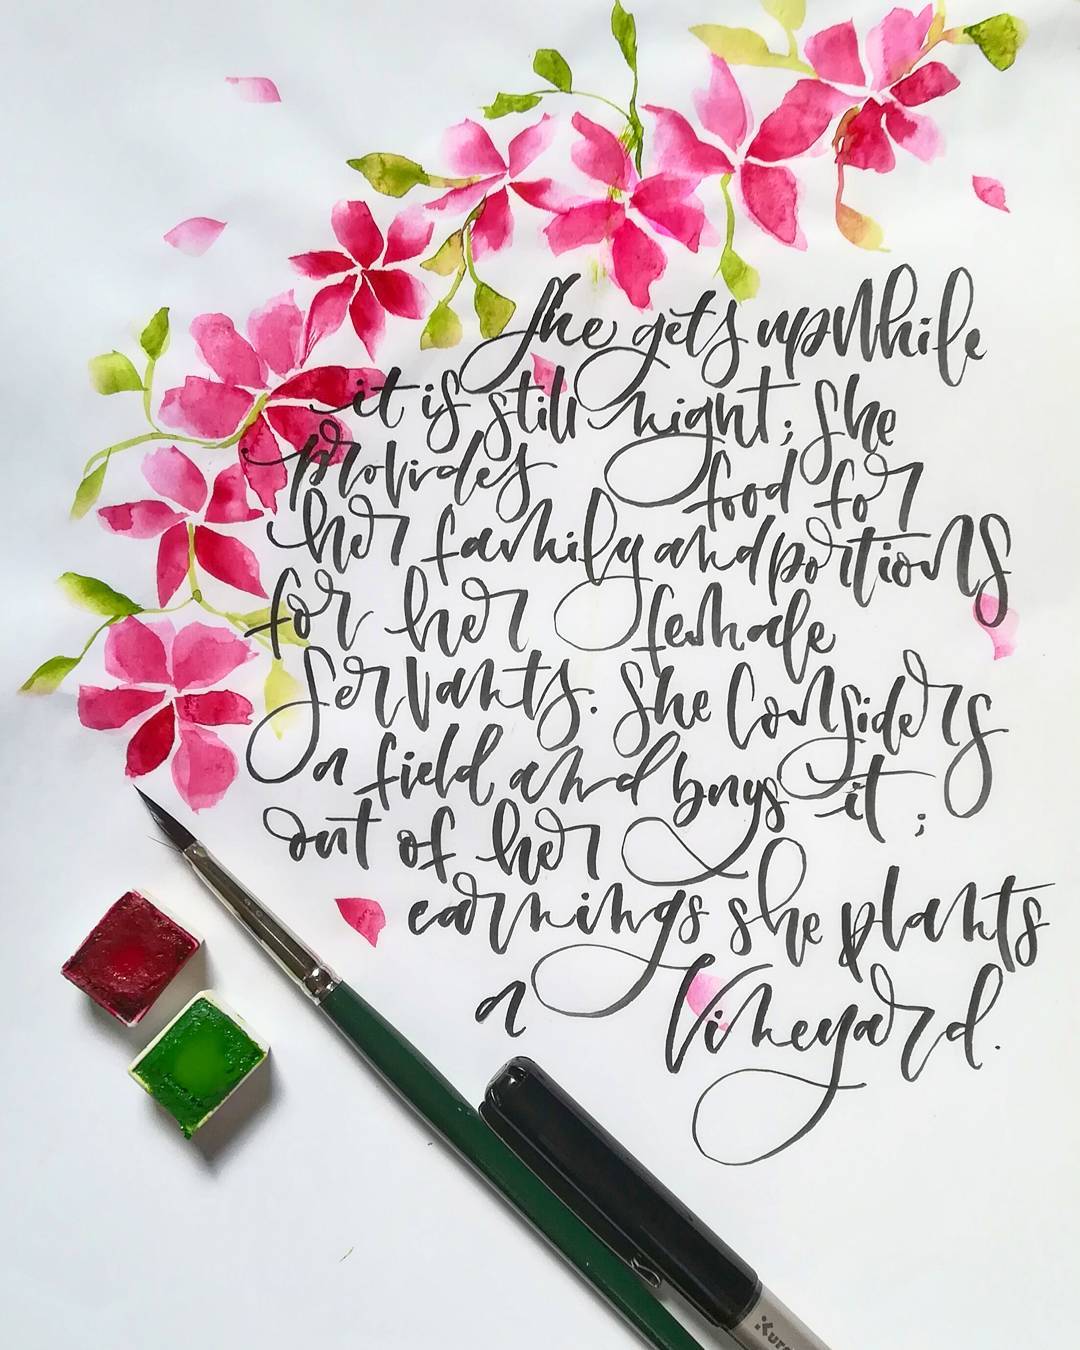 She gets up while
it is still night; she
provides food for
her family and portions
for her female
servants. She considers
a field and buys it;
out of her
earnings she plants
a Vineyard.